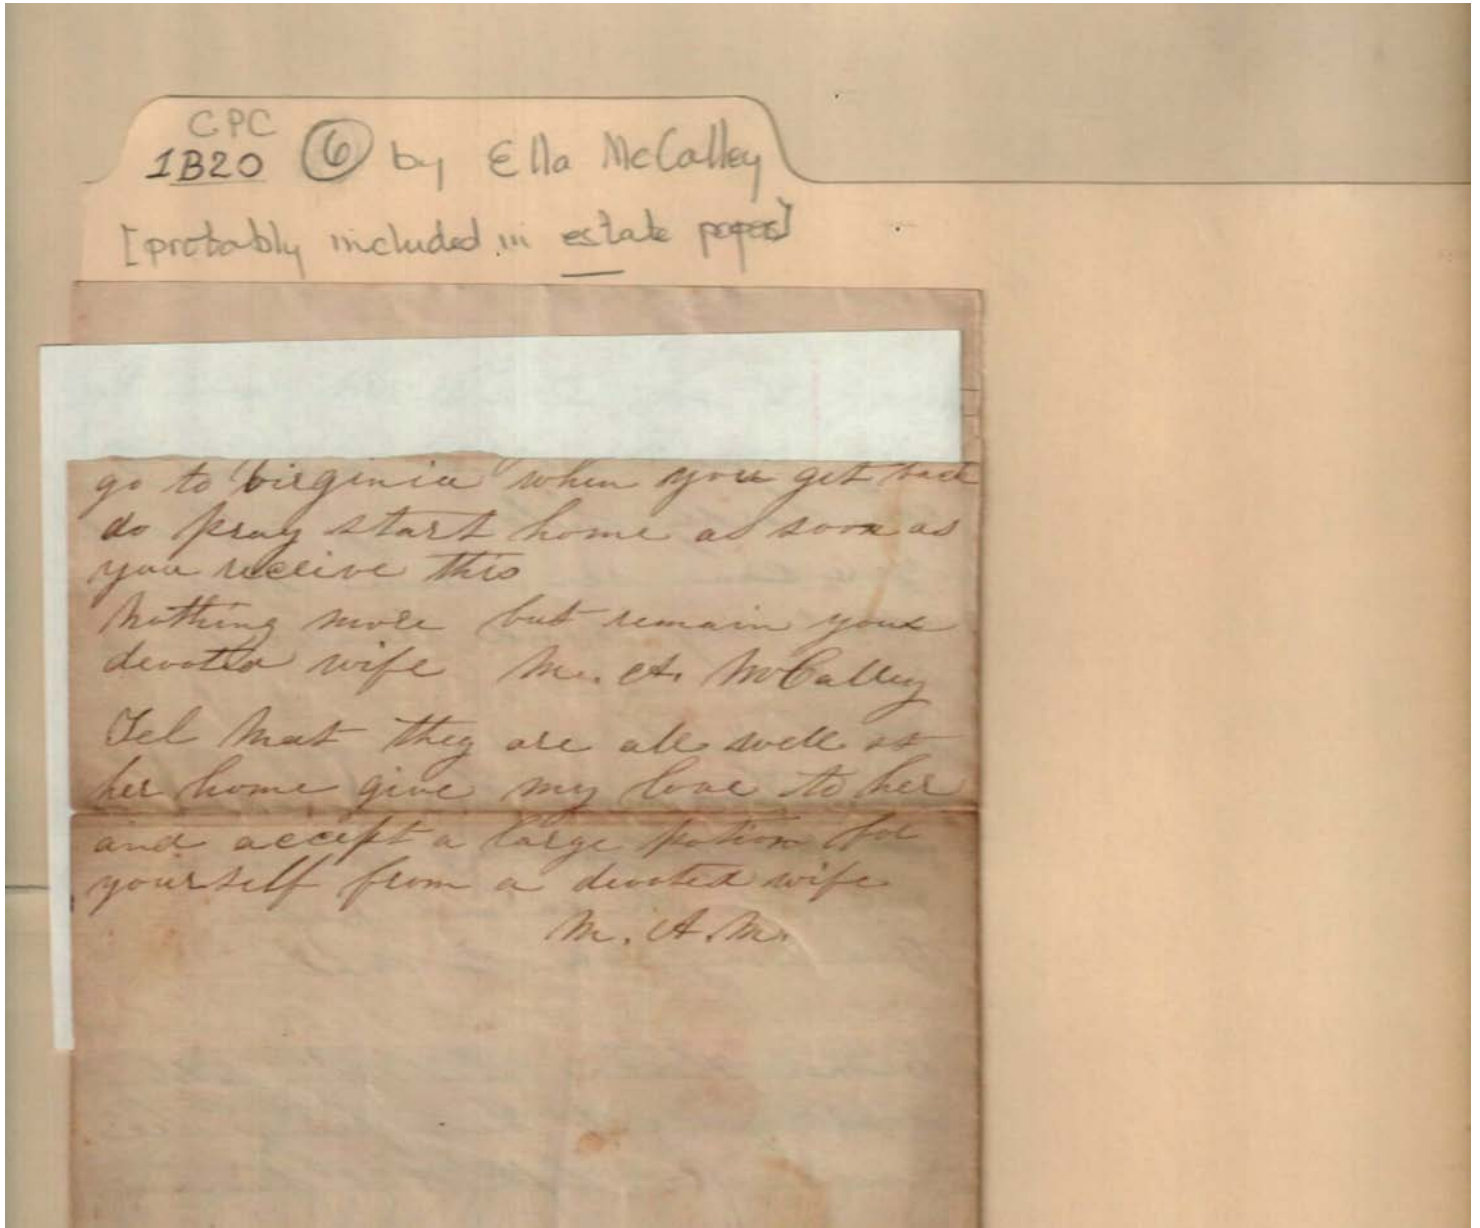 CPC
1B20 6 by Ella McCalley
[probably included in estate papers]
go to Virginia when you get back
do pray start home as soon as
you receive this
Nothing more but remain your
devoted wife M. A. McCalley
Tel Mat they are all well at
her home give my love to her
and accept a large potion for
yourself from a devoted wife
M. A. M.